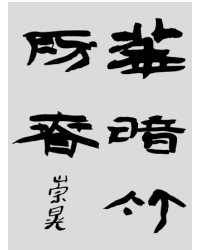 華暗竹
房春
崇晃